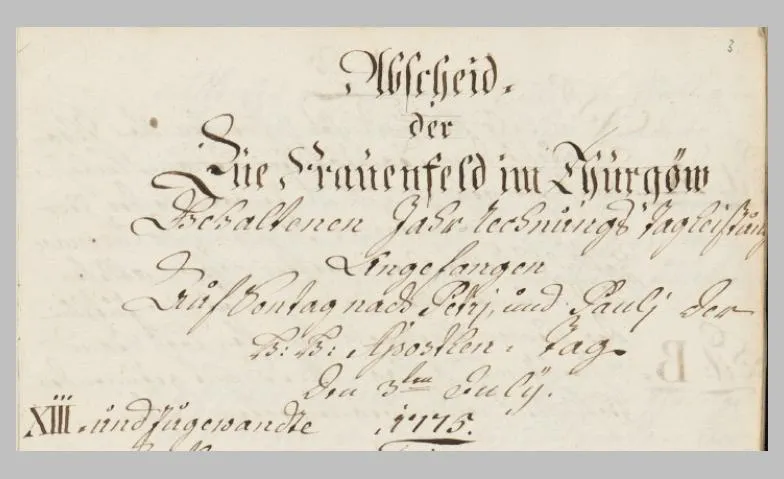 3
Abscheid.
der
Züe Frauenfeld im Thürgöw
Gehaltenen Jahr-rechnungs Tagleistung
Angefangen
Auf Montag nach Petrj, und Paulj der
H: H: Aposteln-Tag
den 3ten Julÿ.
XIII und Zugewandte 1775.